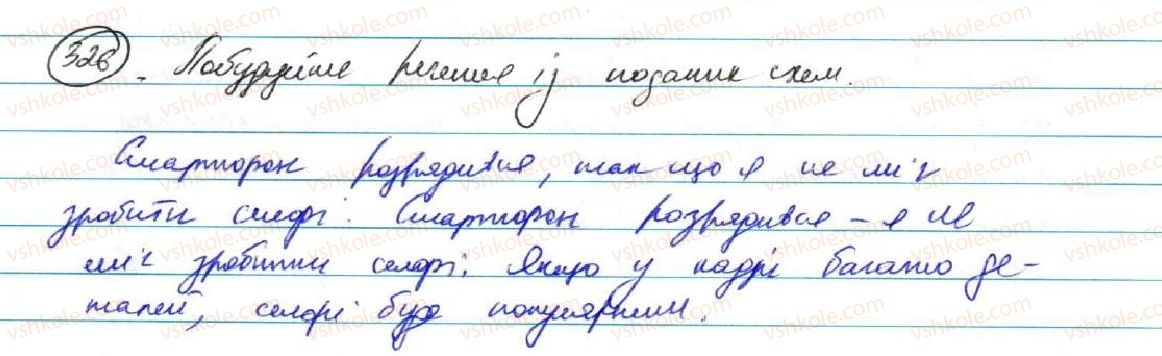 326. Побудуйте речення із поданих схем.
Смартфон розрядився, так що я не міг
зробити селфі. Смартфон розрядився – я не
міг зробити селфі. Якщо у кадрі багато де-
талей, селфі буде популярним.